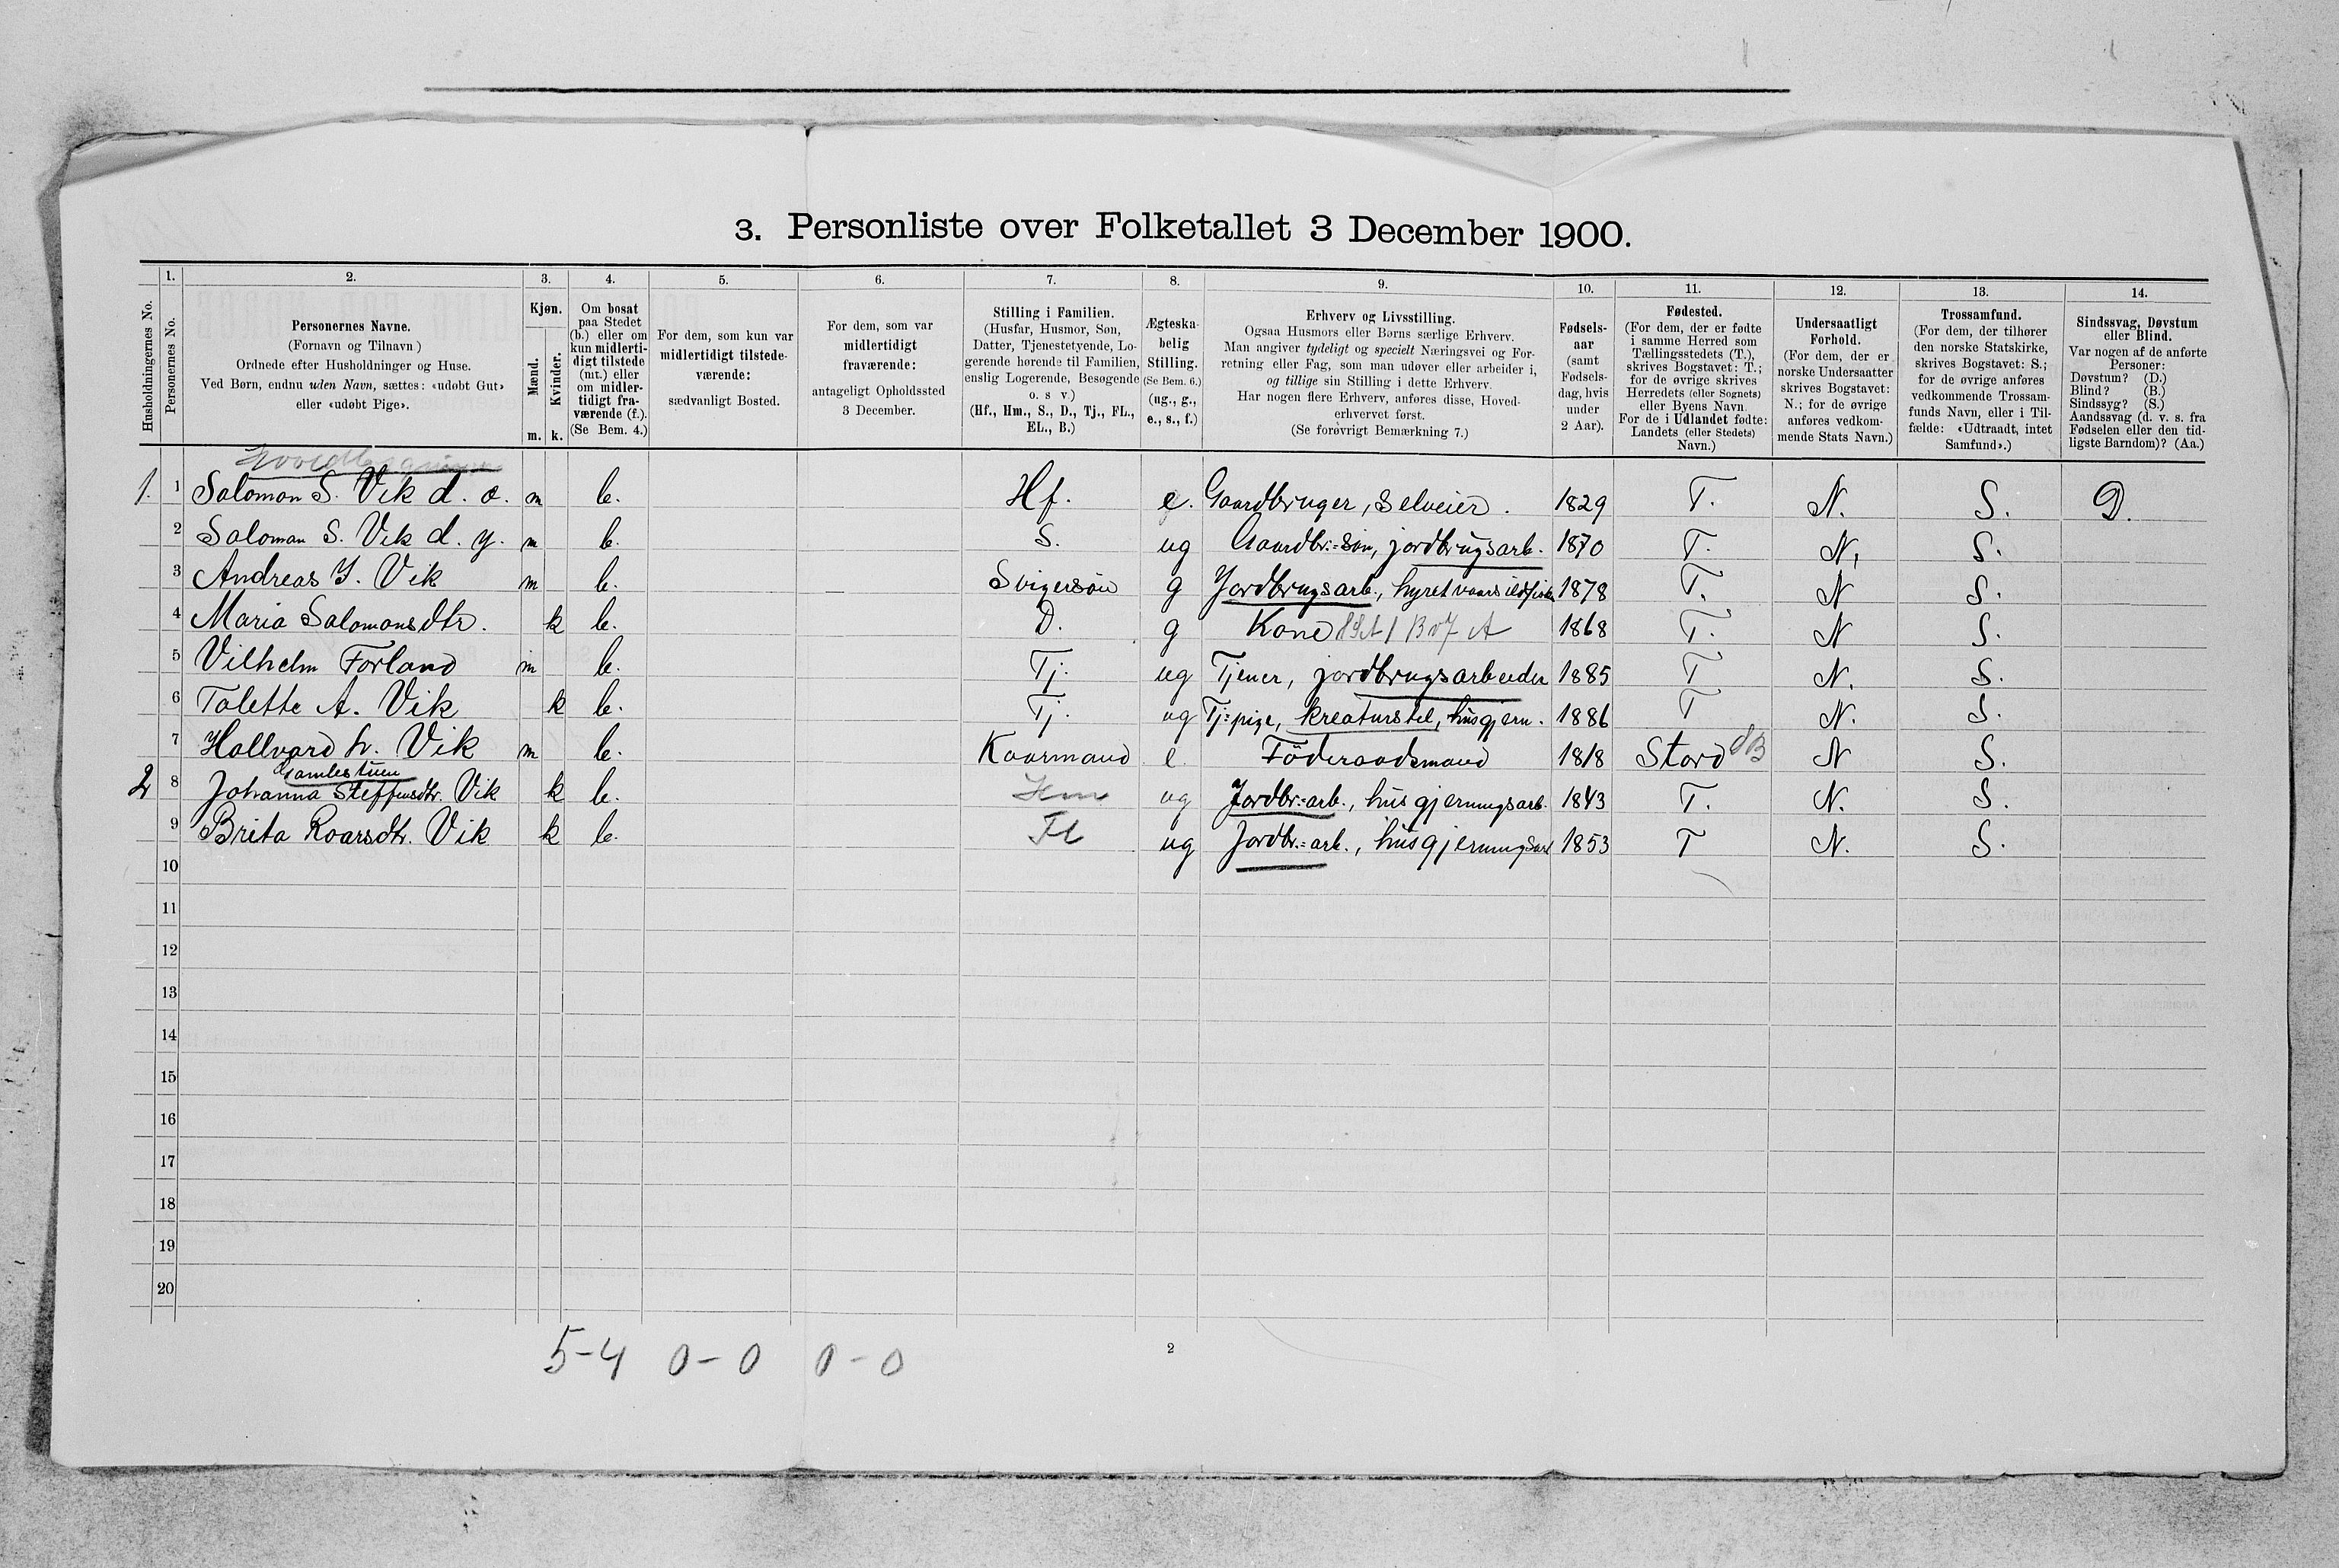 3. Personliste over Folketallet 3 December 1900.
Husholdningernes No.
1.
Personernes No.
2.
Personernes Navne.
(Fornavn og Tilnavn)
Ordnede efter Husholdninger og Huse.
Ved Børn, endnu uden Navn, sættes: «udøbt Gut»
eller «udøbt Pige».
3.
Kjøn.
Mænd.
Kvinder.
m. k.
4.
Om bosat
paa Stedet
(b.) eller om
kun midlerti-
digt tilstede
(mt.) eller
om midler-
tidigt fra-
værende (f.).
(Se Bem. 4.)
5.
For dem, som kun var
midlertidigt tilstede-
værende:
sædvanligt Bosted.
6.
For dem, som var
midlertidigt
fraværende:
antageligt Opholdssted
3 December.
7.
Stilling i Familien.
(Husfar, Husmor, Søn,
Datter, Tjenestetyende, Lo-
gerende hørende til Familien,
enslig Logerende, Besøgende
o. s v)
(Hf., Hm., S., D., Tj., FL.,
EL., B.)
8.
Ægteska-
belig
Stilling.
(Se Bem. 6.)
(ug., g.,
e., s., f.)
9.
Erhverv og Livsstilling.
Ogsaa Husmors eller Børns særlige Erhverv.
Man angiver tydeligt og specielt Næringsvei og For-
retning eller Fag, som man udøver eller arbeider i,
og tillige sin Stilling i dette Erhverv.
Har nogen flere Erhverv, anføres disse, Hoved-
erhvervet først.
(Se forøvrigt Bemærkning 7.)
10.
Fødsels-
aar
(samt
Fødsels-
dag, hvis
under
2 Aar).
11.
Fødested.
(For dem, der er fødte
i samme Herred som
Tællingsstedets (T.),
skrives Bogstavet: T.;
for de øvrige skrives
Herredets (eller Sognets)
eller Byens Navn.
For de i Udlandet fødte:
Landets (eller Stedets)
Navn.)
12.
Undersaatligt
Forhold.
(For dem, der er
norske Undersaatter
skrives Bogstavet:
N.; for de øvrige
anføres vedkom-
mende Stats Navn.)
13.
Trossamfund.
(For dem, der tilhører
den norske Statskirke,
skrives Bogstavet: S.;
for de øvrige anføres
vedkommende Trossam-
funds Navn, eller i Til-
fælde: «Udtraadt, intet
Samfund».)
14.
Sindssvag, Døvstum
eller Blind.
Var nogen af de anførte
Personer:
Døvstum? (D.)
Blind? (B.)
Sindssyg? (S.)
Aandssvag (d. v. s. fra
Fødselen eller den tid-
ligste Barndom)? (Aa.)
1. 1 Salomon S. Vik d. æ. m b. Hf. e. Gaardbruger, selveier. 1829 T. N. S. D.
2 Saloman S. Vik d. y. m b. S. ug Gaardbr.=søn, jordbrugsarb. 1870 T. N, S.
3 Andreas J. Vik m b. Svigersøn g Jordbrugsarb., hyret vaarsildfisker 1878 T. N S.
4 Maria Salomonsdtr. k b. D. g Kone 1868 T. N S.
5 Vilhelm Førland m b. Tj. ug Tjener, jordbrugsarbeider 1885 T N. S.
6 Talette A. Vik k b. Tj. ug Tj:pige, kreaturstel, husgjern. 1886 T N. S.
7 Hallvard H. Vik m b. Kaarmand e. Föderaadsmand 1818 Stord N S.
Gamlestuen
2 8 Johanna Steffensdtr. Vik k b. Hm ug Jordbr.=arb., husgjerningsarb. 1843 T. N. S.
9 Brita Roarsdtr. Vik k b. Fl ug Jordbr.=arb., husgjerningsarb 1853 T N. S.
10
11
12
13
14
15
16
17
18
19
20
5-4 0-0 0-0
2